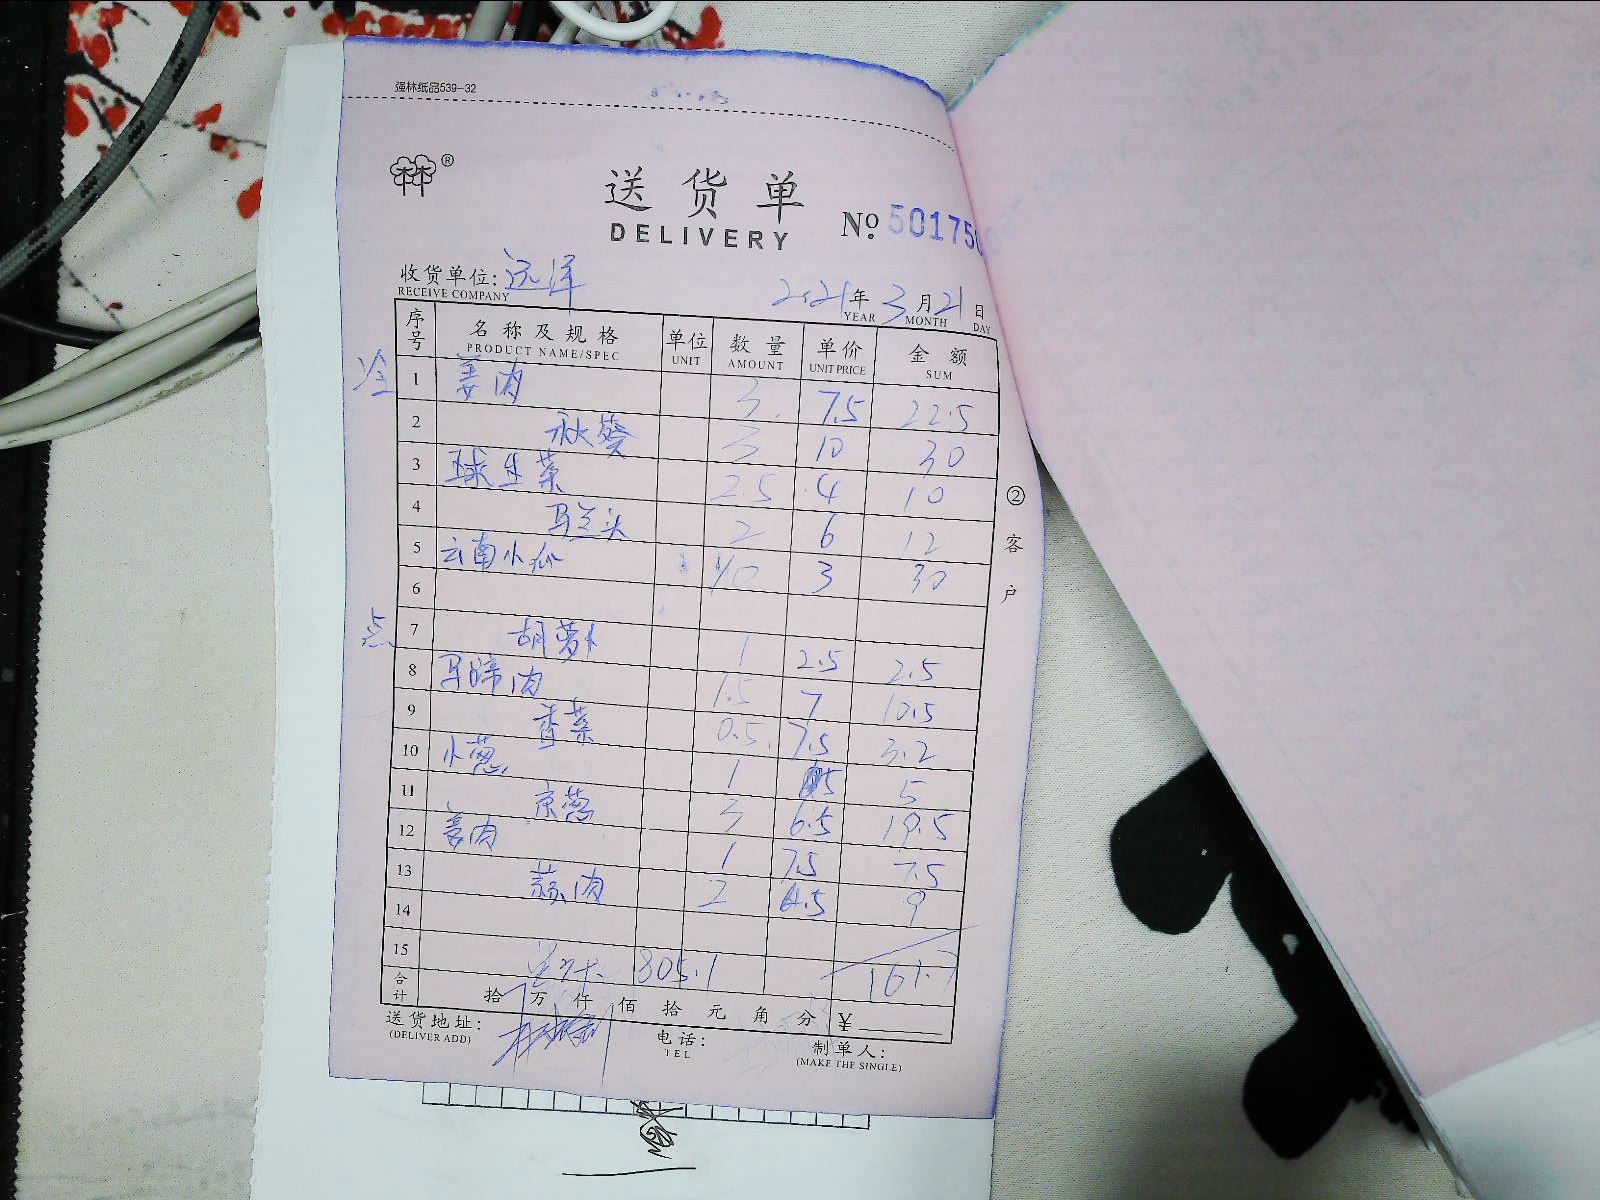 强林纸品539-32
®
送货单
DELIVERY
№ 50175
收货单位: 远洋
RECEIVE COMPANY
2021年 3月 21日
YEAR MONTH DAY
序号 名称及规格 单位 数量 单价 金额
PRODUCT NAME/SPEC UNIT AMOUNT UNIT PRICE SUM
冷 1 姜肉 3 7.5 22.5
2 秋葵 3 10 30
3 球生菜 2.5 4 10
4 马兰头 2 6 12
5 云南小瓜 10 3 30
6
点 7 胡萝卜 1 2.5 2.5
8 马蹄肉 1.5 7 10.5
9 香菜 0.5 7.5 3.2
10 小葱 1 5 5
11 京葱 3 6.5 19.5
12 姜肉 1 7.5 7.5
13 蒜肉 2 4.5 9
14
15 总计 805.1 161.7
合计 拾 万 仟 佰 拾 元 角 分 ¥
送货地址: 电话: 制单人:
(DELIVER ADD) TEL (MAKE THE SINGLE)
② 客户